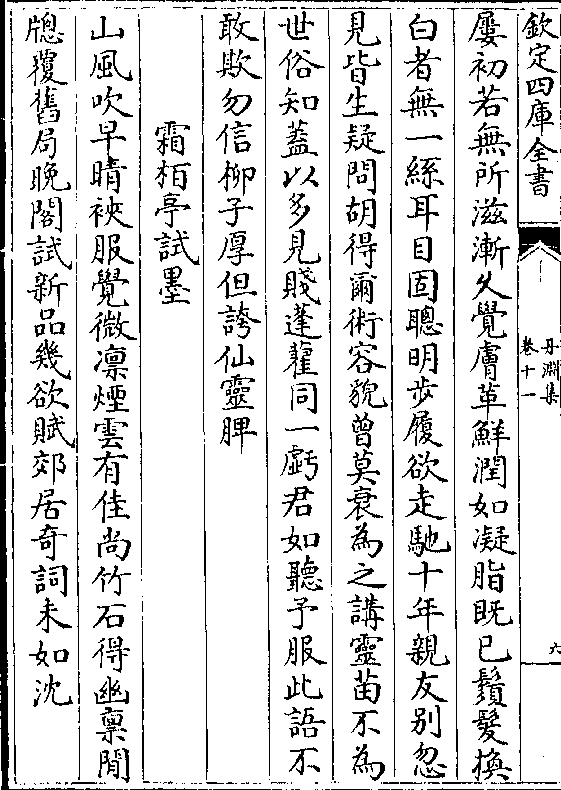 欽定四庫全書
丹淵集
卷十一
六
屢初若無所滋漸久覺膚革鮮潤如凝脂既已鬚髮換
白者無一絲耳目固聰明步履欲走馳十年親友別忽
見皆生疑問胡得爾術容貌曾莫衰為之講靈苗不為
世俗知蓋以多見賤蓬藋同一虧君如聽予服此語不
敢欺勿信柳子厚但誇仙靈脾
霜栢亭試墨
山風吹早晴裌服覺微凛煙雲有佳尚竹石得幽稟閒
牎覆舊局晩閣試新品幾欲賦郊居奇詞未如沈